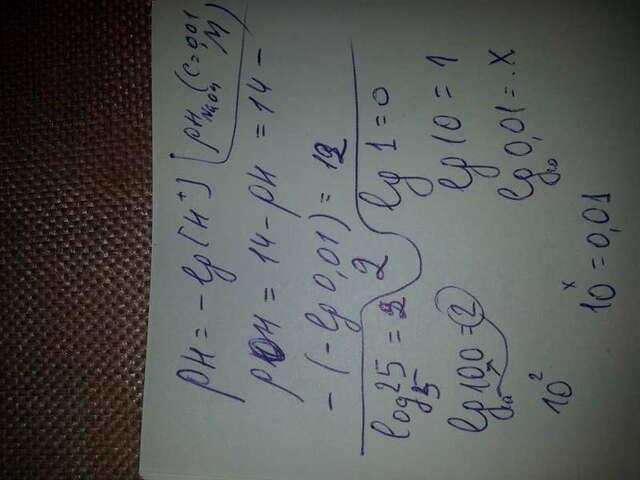 pH = -lg[H⁺] pH NaOH (C=0,01 M)
pOH = 14-pH = 14 -
- (-lg 0,01) = 12
log₅ 25 = 2 2 lg 1 = 0
lg 100 = 2 lg 10 = 1
10² lg 0,01 = x
10ˣ = 0,01